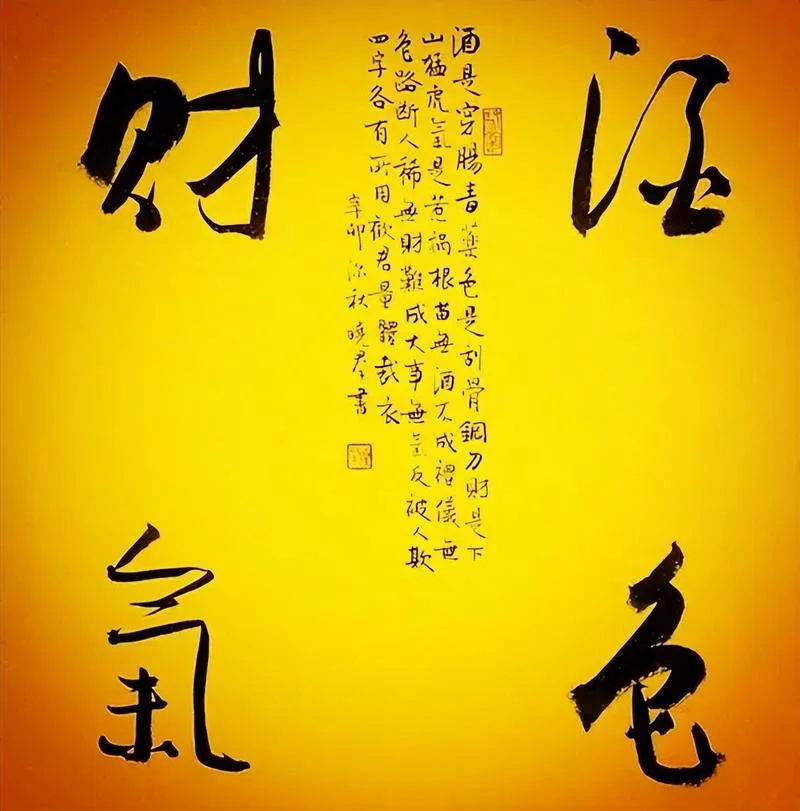 酒
色
酒是穿腸毒藥色是刮骨鋼刀財是下
山猛虎氣是惹禍根苗無酒不成禮儀無
色路断人稀無財難成大事無氣反被人欺
四字各有所用勸君量體裁衣
辛卯深秋曉群書
财
氣